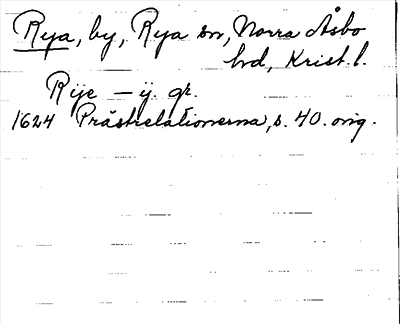 Rya, by, Rya sn, Norra Åsbo
hd, Krist. l.
Rije – ÿ. gr.
1624 Prästrelationerna, s. 40. orig.